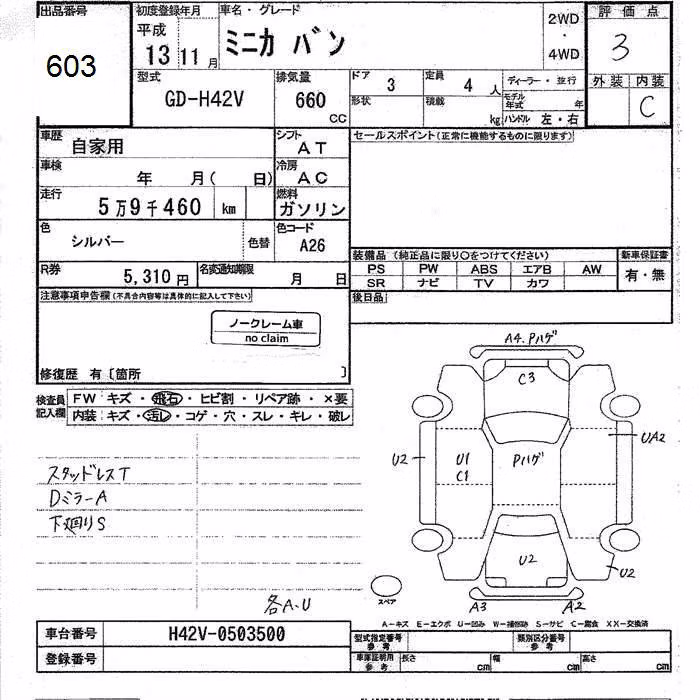 出品番号 初度登録年月 車名・グレード 2WD ・ 4WD 評価点
603 平成 13 11月 ミニカ バン 3
型式 排気量 ドア 3 定員 4人 ディーラー・並行 外装 内装
GD-H42V 660 CC 形状 積載 kg モデル年式 年 ハンドル 左・右 C
車歴 自家用 シフト AT セールスポイント(正常に機能するものに限ります)
車検 年 月( 日) 冷房 AC
走行 5万9千460 km 燃料 ガソリン
色 シルバー 色替 色コード A26
装備品 (純正品に限り〇をつけてください) 新車保証書
PS PW ABS エアB AW 有・無
SR ナビ TV カワ
R券 5,310円 名変通知期限 月 日
後日品
注意事項申告欄(不具合内容等は具体的に記入して下さい)
ノークレーム車
no claim
修復歴 有〔箇所 〕
検査員記入欄 FW キズ・飛石・ヒビ割・リペア跡・×要
内装 キズ・汚レ・コゲ・穴・スレ・キレ・破レ
A4.Pハゲ
C3
UA2
U2 U1 Pハゲ
C1
スタッドレスT
DミラーA
下廻りS
U2
U2
スペア
各A.U
A3 A2
A-キズ E-エクボ U-凹み W-補修跡 S-サビ C-腐食 XX-交換済
車台番号 H42V-0503500 型式指定番号 参考 類別区分番号 参考
登録番号 車庫証明用 参考 長さ cm 幅 cm 高さ cm